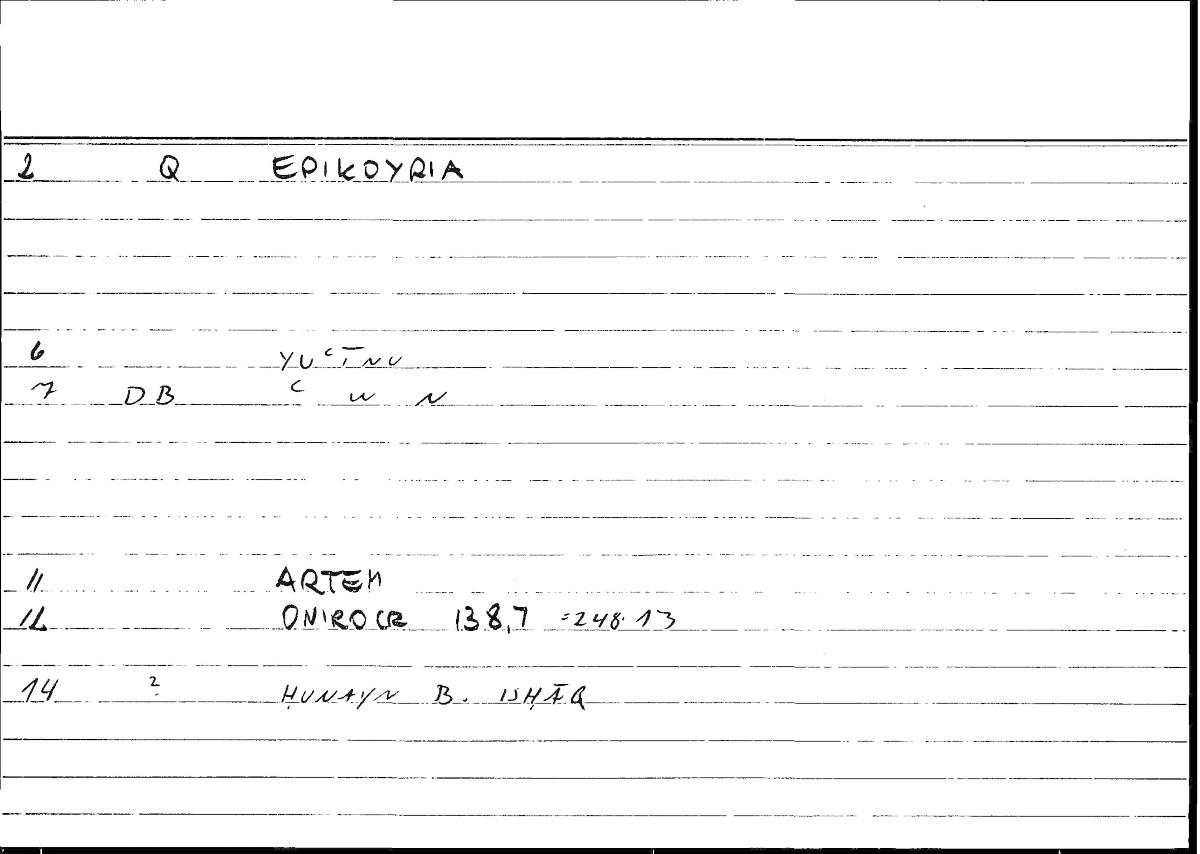 2 Q EPIKOYRIA
6 YUʿĪNU
7 DB ʿ W N
11 ARTEM
12 ONIROCR 138,7 =248.13
14 ? ḤUNAYN B. ISḤĀQ